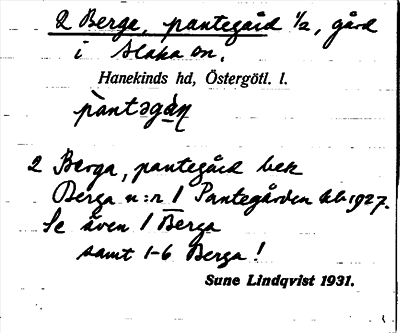 2 Berga, pantegård 1/2, gård
i Slaka sn.
Hanekinds hd, Östergötl. l.
pàntəgàɳ
2 Berga, pantegård bek
Berga n:r 1 Pantegården bb 1927.
Se även 1 Berga
samt 1-6 Berga!
Sune Lindqvist 1931.